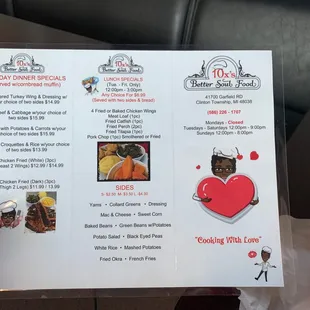 10x's
Better Soul Food
DAY DINNER SPECIALS
ved w/cornbread muffin)
ered Turkey Wing & Dressing w/
choice of two sides $14.99
Croquettes & Rice w/your choice
of two sides $15.99
with Potatoes & Carrots w/your
choice of two sides $15.99
and Cabbage w/your choice of
two sides $13.99
Chicken Fried (White) (3pc)
east 2 Wings) $12.99 / $14.99
Chicken Fried (Dark) (3pc)
Thigh 2 Legs) $11.99 / $13.99
10x's
Better Soul Food
LUNCH SPECIALS
(Tue. - Fri. Only)
12:00pm - 3:00pm
Any Choice For $9.99
(Served with two sides & bread)
4 Fried or Baked Chicken Wings
Meat Loaf (1pc)
Fried Catfish (1pc)
Fried Perch (2pc)
Fried Tilapia (1pc)
Pork Chop (1pc) Smothered or Fried
SIDES
Yams • Collard Greens • Dressing
Mac & Cheese • Sweet Corn
Baked Beans • Green Beans w/Potatoes
Potato Salad • Black Eyed Peas
White Rice • Mashed Potatoes
Fried Okra • French Fries
10x's
Better Soul Food
41700 Garfield RD
Clinton Township, MI 48038
(586) 226 - 1107
Mondays - Closed
Tuesdays - Saturdays 12:00pm - 9:00pm.
Sundays 12:00pm - 8:00pm
"Cooking With Love"